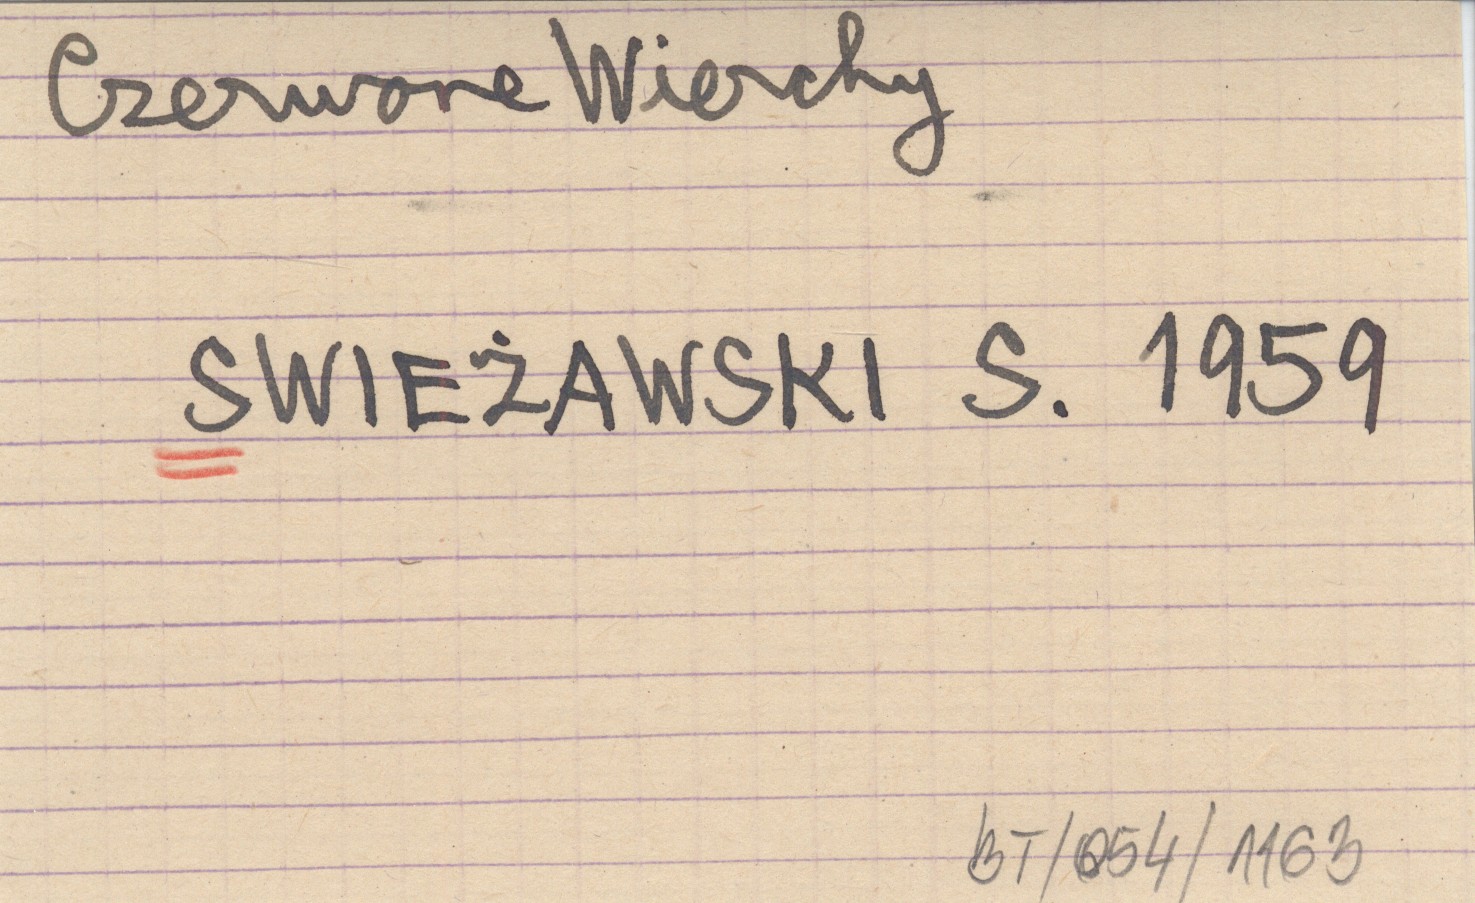 Czerwone Wierchy
SWIEŻAWSKI S. 1959
BT/054/1163